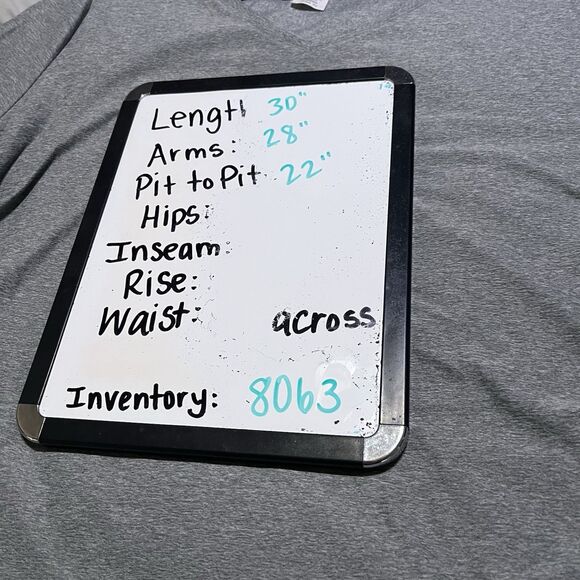 Length 30"
Arms: 28"
Pit to Pit 22"
Hips:
Inseam:
Rise:
Waist: across
Inventory: 8063